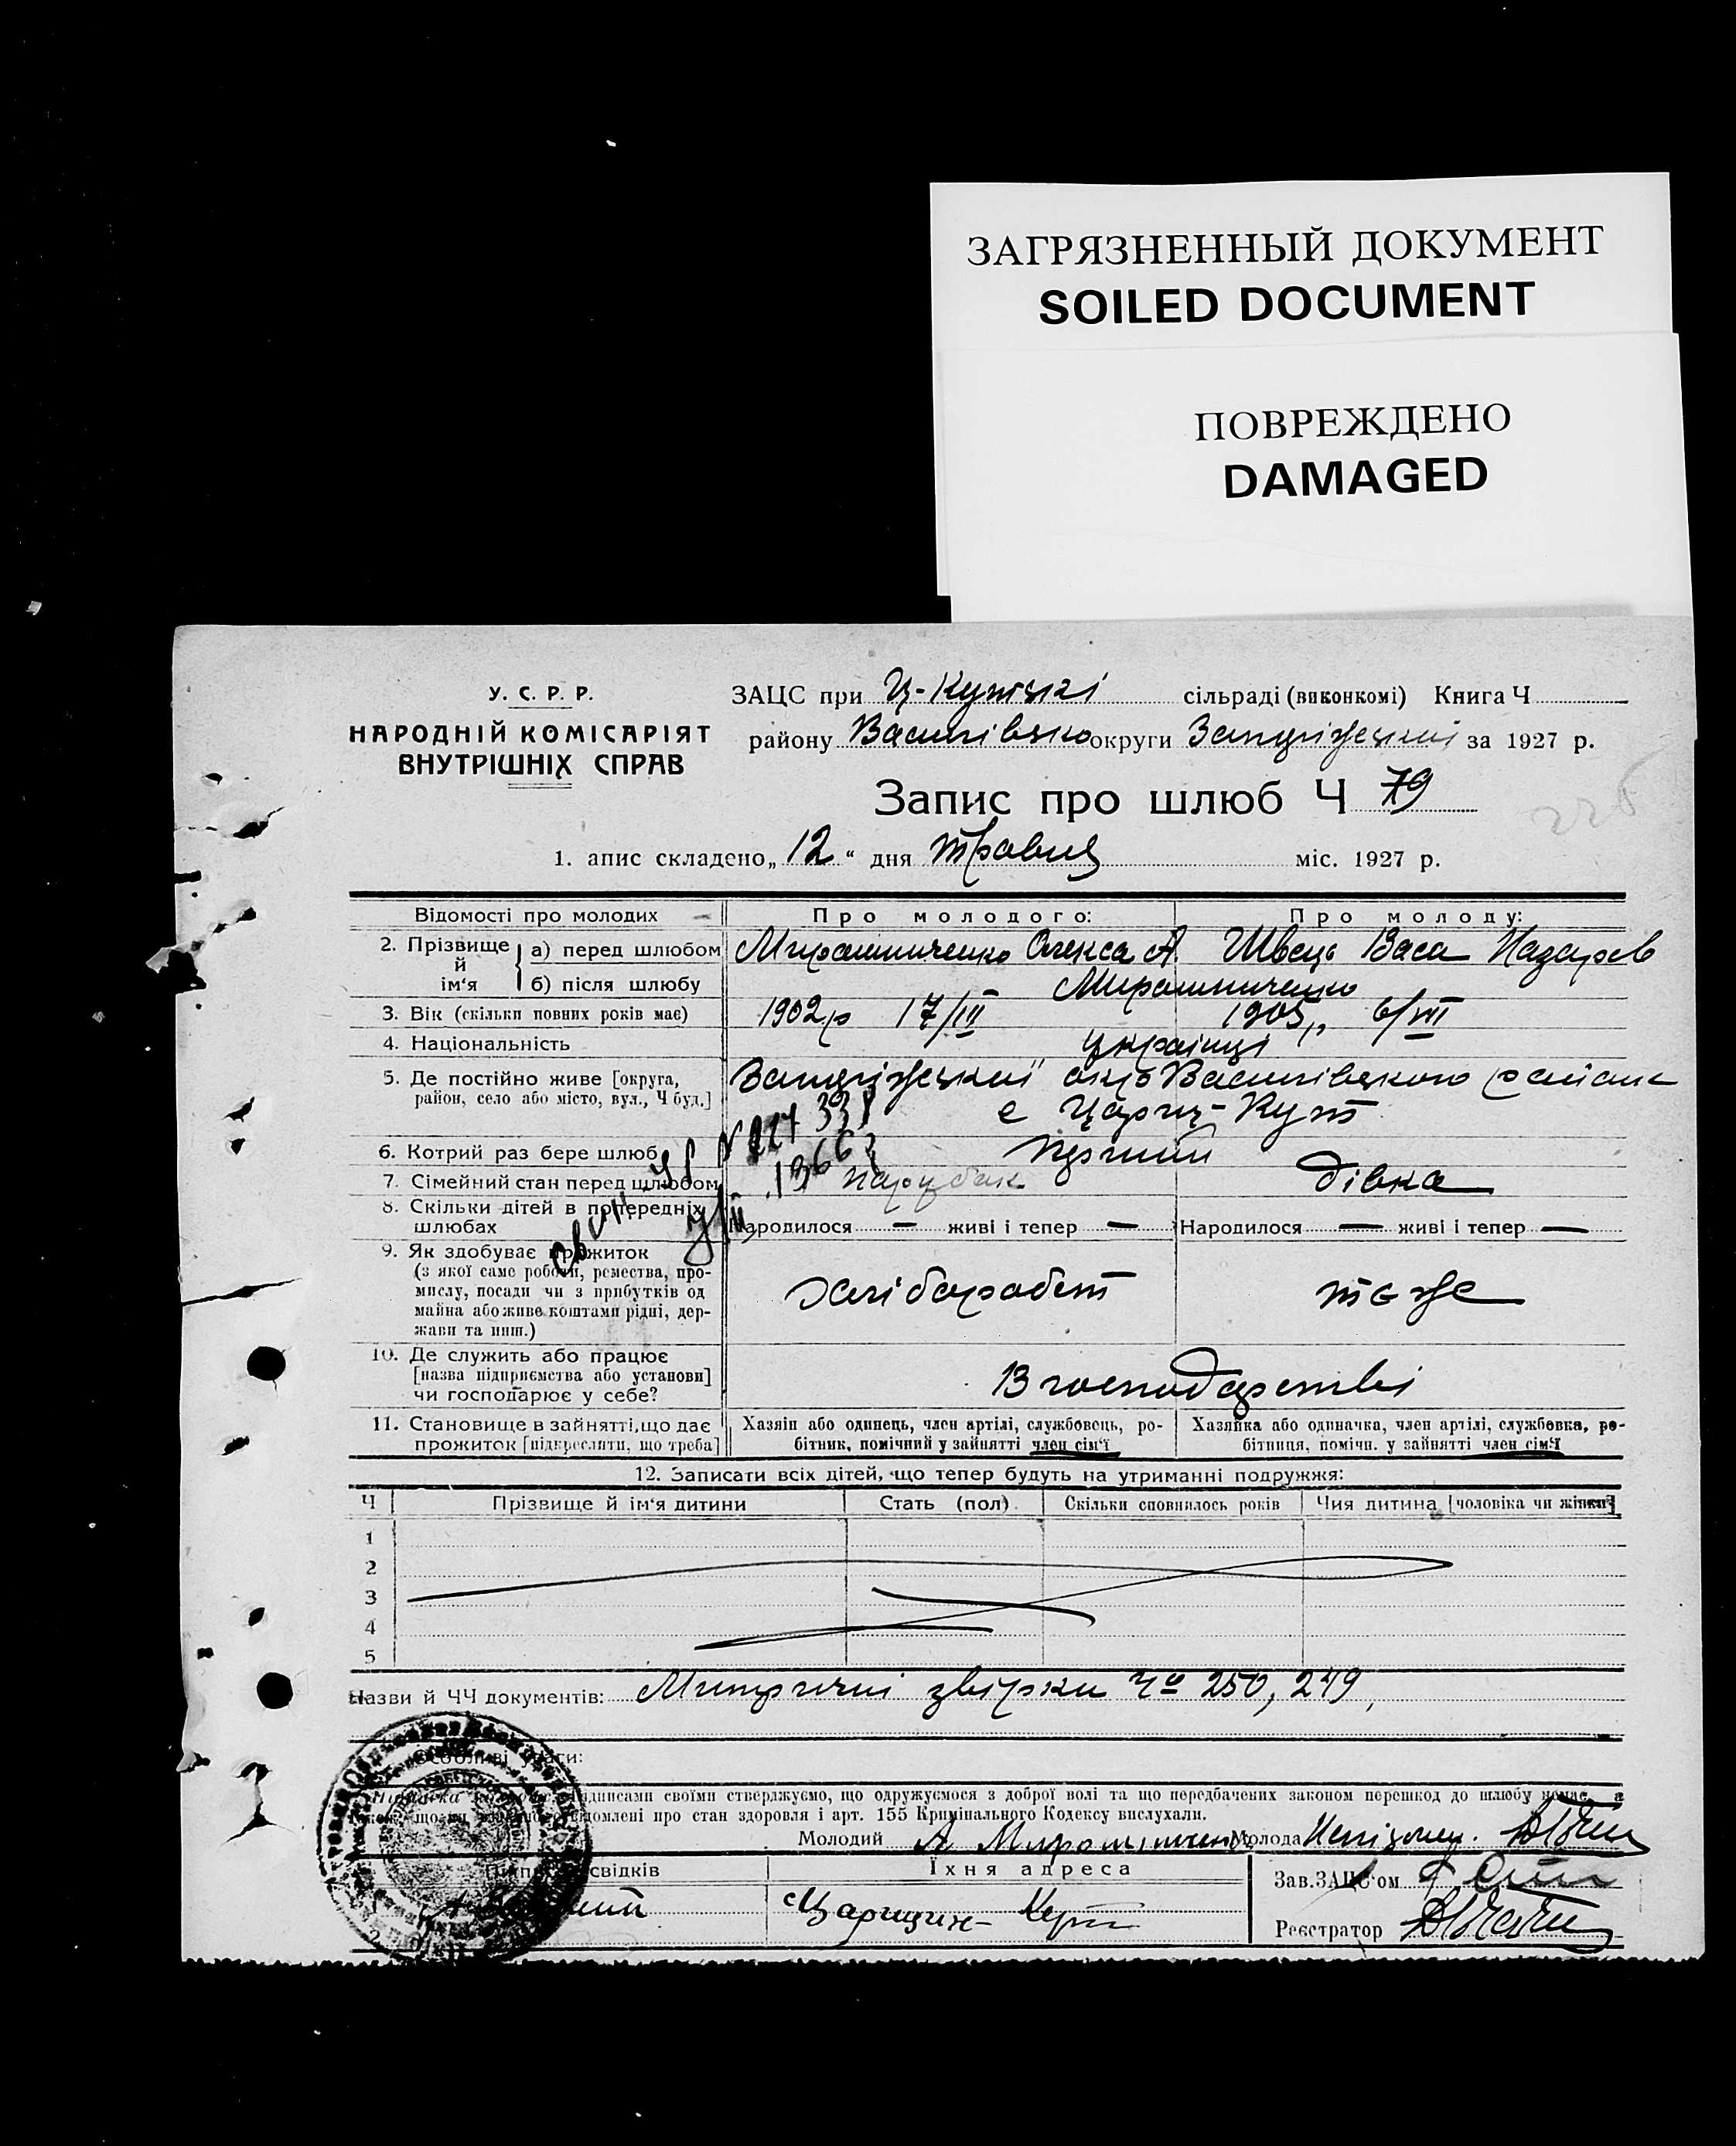 ЗАГРЯЗНЕННЫЙ ДОКУМЕНТ
SOILED DOCUMENT
ПОВРЕЖДЕНО
DAMAGED
У. С. Р. Р.
НАРОДНІЙ КОМІСАРІЯТ
ВНУТРІШНІХ СПРАВ
ЗАЦС при Ц-Кутські сільраді (виконкомі) Книга Ч
району Василівсько округи Запоріжської за 1927 р.
Запис про шлюб Ч 79
1. апис складено „12“ дня травня міс. 1927 р.
Відомості про молодих
Про молодого:
Про молоду:
2. Прізвище й ім‘я
а) перед шлюбом Мирошниченко Олекса А. Швець Васа Назаров
б) після шлюбу Мирошниченко
3. Вік (скільки повних років має) 1902р 17/III 1905р 6/VII
4. Національність українці
5. Де постійно живе [округа, Запоріжської окр Василівського району
район, село або місто, вул., Ч буд.] с Цариц-Кут
6. Котрий раз бере шлюб перший
7. Сімейний стан перед шлюбом парубак дівка
8. Скільки дітей в попередніх
шлюбах Народилося — живі і тепер — Народилося — живі і тепер —
9. Як здобуває прожиток
(з якої саме роботи, ремества, про-
мислу, посади чи з прибутків од
майна або живе коштами рідні, дер-
жави та инш.)
хліборобст
тоже
10. Де служить або працює
[назва підприємства або установи]
чи господарює у себе?
В господарстві
11. Становище в зайнятті, що дає
прожиток [підкреслити, що треба]
Хазяїн або одинець, член артілі, службовець, ро-
бітник, помічний у зайнятті член сім‘ї
Хазяйка або одиначка, член артілі, службовка, ро-
бітниця, помічн. у зайнятті член сім‘ї
12. Записати всіх дітей, що тепер будуть на утриманні подружжя:
Ч Прізвище й ім‘я дитини Стать (пол) Скільки сповнилось років Чия дитина [чоловіка чи жінки]
1
2
3
4
5
Назви й ЧЧ документів: Митричні звірки Чо 250, 249,
Особливі уваги:
підписами своїми стверджуємо, що одружуємося з доброї волі та що передбачених законом перешкод до шлюбу немає, а
домлені про стан здоровля і арт. 155 Кримінального Кодексу вислухали.
Молодий А Мирошниченко Молода Неписмен.
свідків
Їхня адреса
Царицин- Кут
Зав.ЗАЦС‘ом
Реєстратор